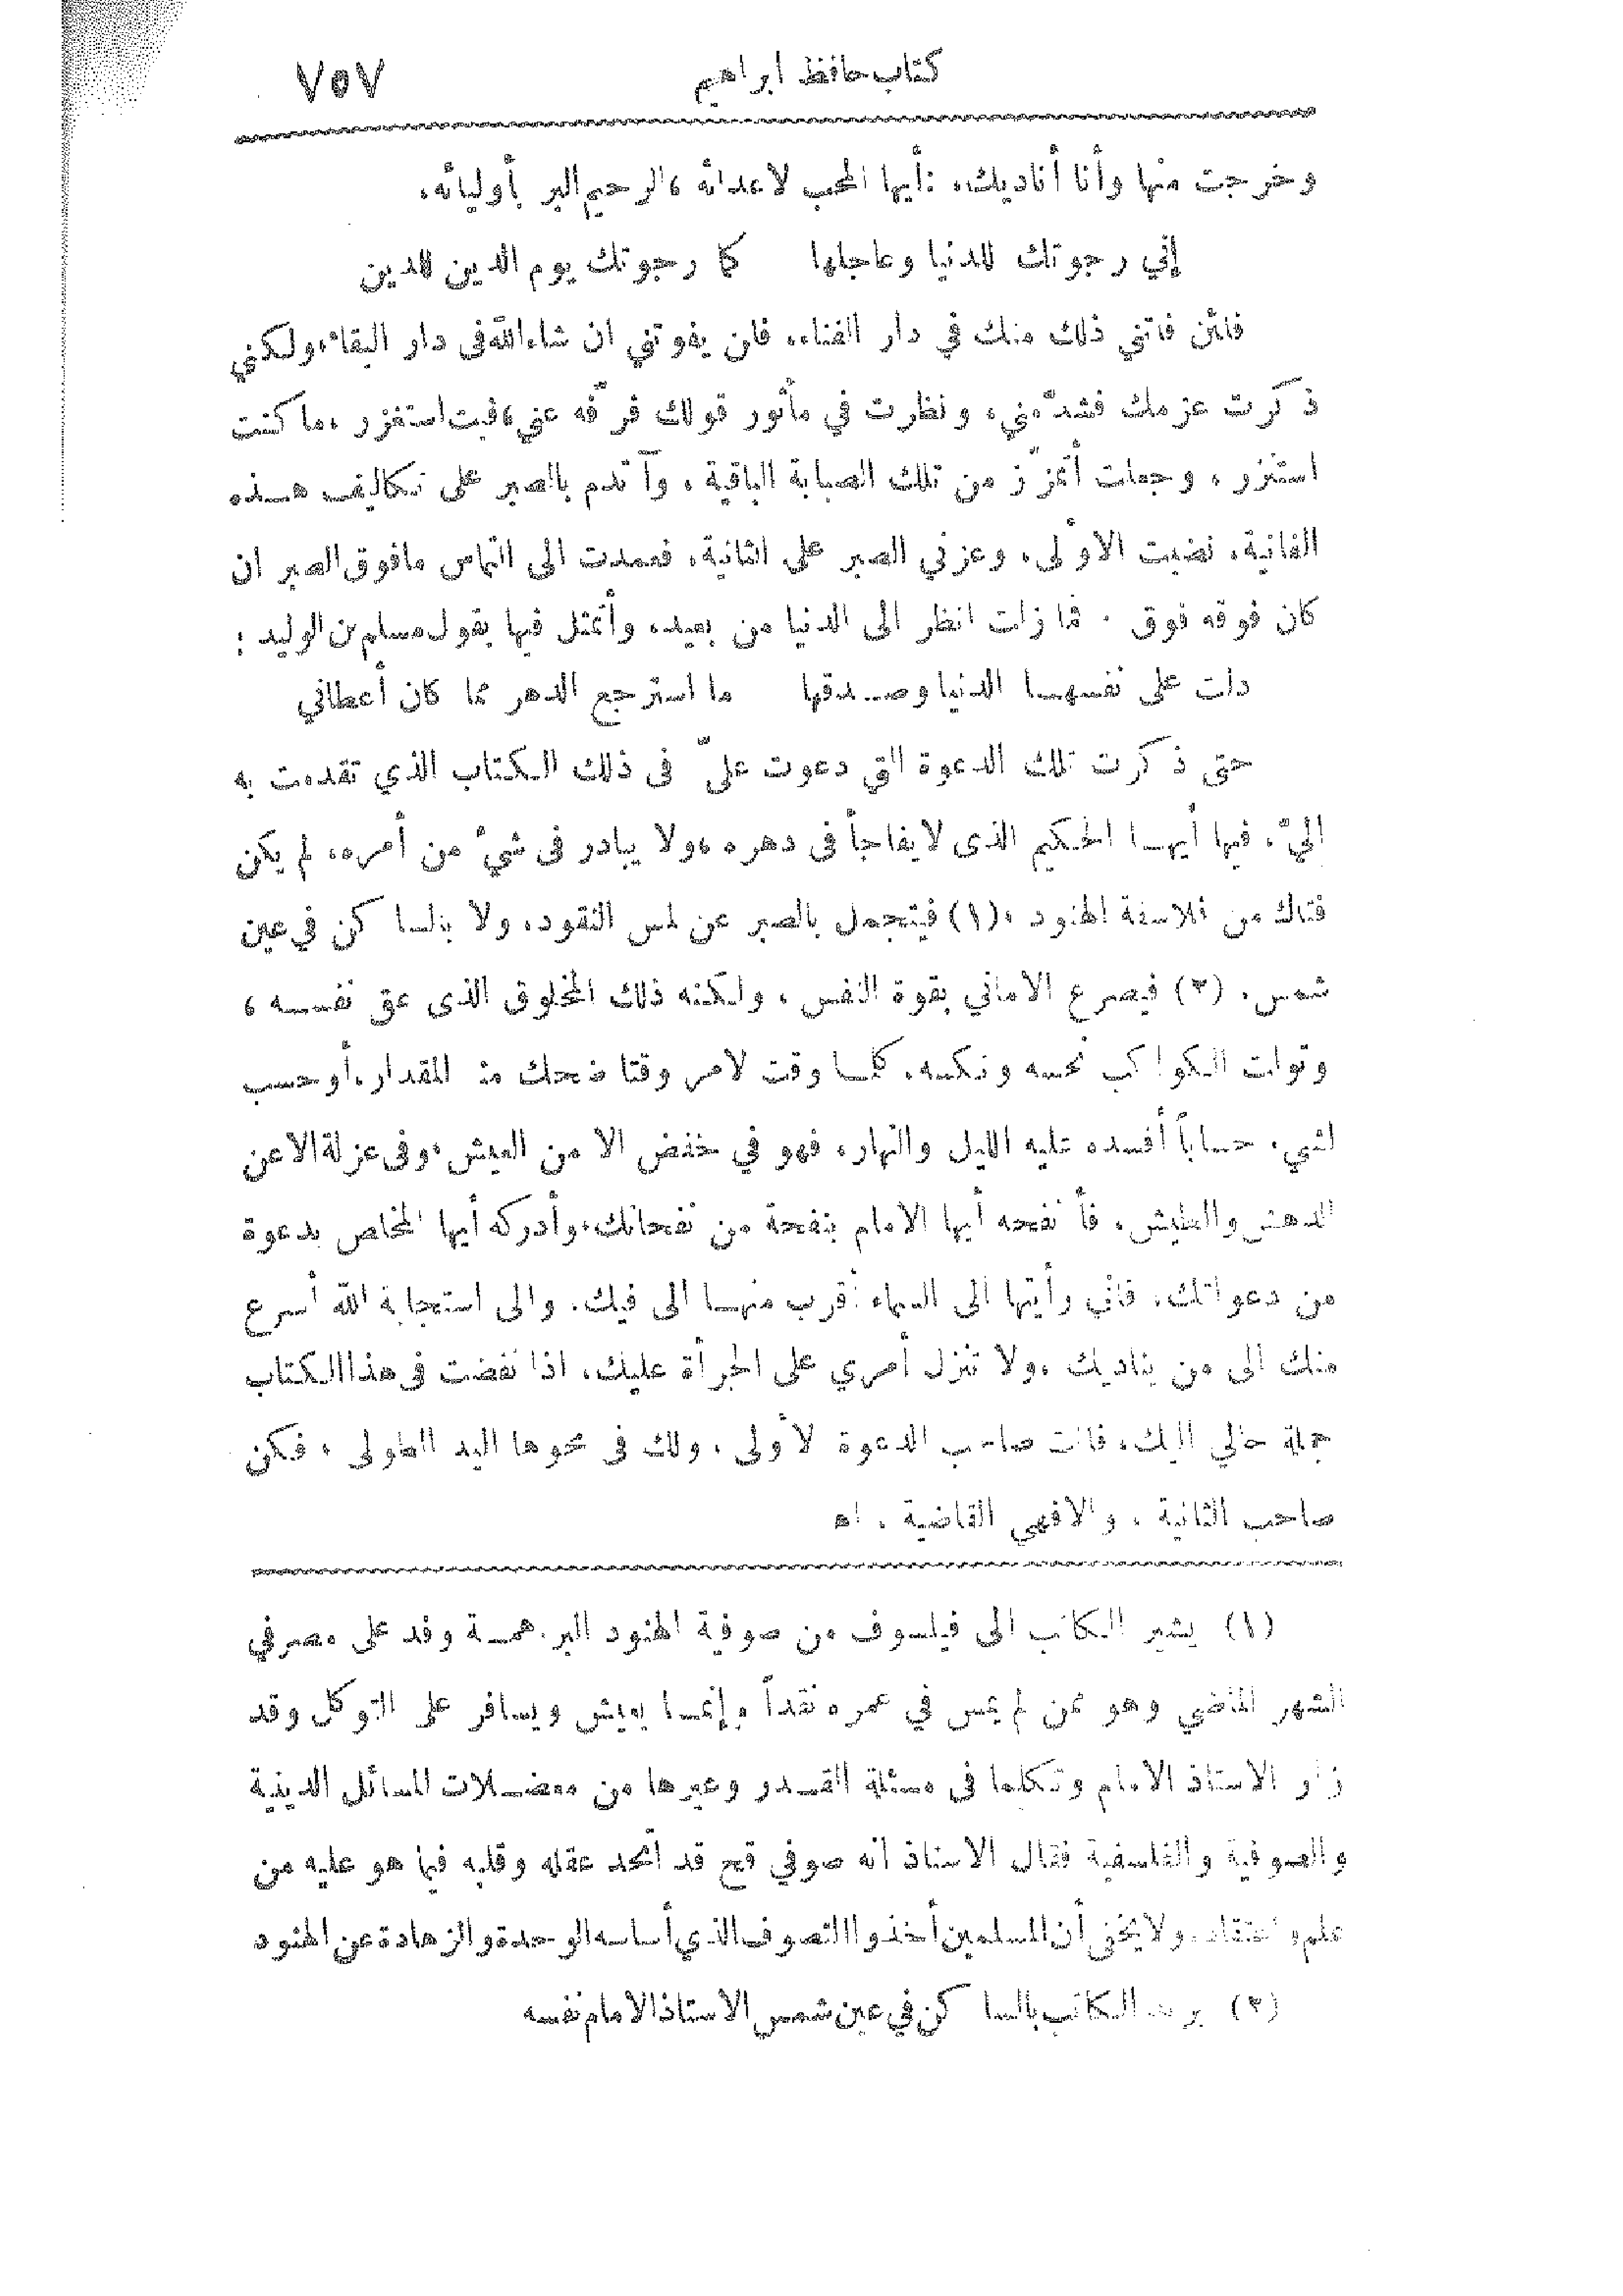 كتاب حافظ ابراهيم ٧٥٧
وخرجت منها وأنا أناديك، :أيها المحب لاعدائه ،الرحيم البر بأوليائه،
إني رجوتك للدنيا وعاجلها كما رجوتك يوم الدين للدين
فلئن فاتني ذلك منك في دار الفناء، فلن يفوتني ان شاء الله فى دار البقاء،ولكني
ذكرت عزمك فشدّ مني، ونظرت في مأثور قولك فرّفه عني،فبت استغزر ،ما كنت
استنزر ، وجعلت أتمزّز من تلك الصبابة الباقية ، وأتدم بالصبر على تكاليف هــذه
الفانية، نضبت الاولى، وعزني الصبر على الثانية، فعمدت الى التماس مافوق الصبر ان
كان فوقه فوق . فما زلت انظر الى الدنيا من بعيد، وأتمثل فيها بقول مسلم بن الوليد :
دلت على نفسهـا الدنيا وصــدقها ما استرجع الدهر مما كان أعطاني
حتى ذكرت تلك الدعوة التي دعوت عليّ فى ذلك الـكتاب الذي تقدمت به
اليّ، فيها أيهـا الحكيم الذى لايفاجأ فى دهره ،ولا يبادر فى شيء من أمره، لم يكن
فتاك من فلاسفة الهنود ،(١) فيتجمل بالصبر عن لمس النقود، ولا بالساكن في عين
شمس، (٢) فيصرع الاماني بقوة النفس ، ولكنه ذلك المخلوق الذى عق نفسـه ،
وتولت الـكواكب نحسه ونكسه، كلمـا وقت لامر وقتا ضحك منه المقدار،أو حسب
لشيء حساباً أفسده عليه الليل والنهار، فهو في خفض الا من العيش،وفى عزلة الا عن
الدهش والطيش، فأنفحه أيها الامام بنفحة من نفحاتك،وأدركه أيها المخلص بدعوة
من دعواتك، فاني رأيتها الى السماء أقرب منهـا الى فيك، والى استجابة الله أسرع
منك الى من يناديك ،ولا تنزل أمري على الجرأة عليك، اذا نفضت فى هذا الـكتاب
جملة حالي اليك، فانت صاحب الدعوة لاولى ، ولك فى محوها اليد الطولى ، فـكن
صاحب الثانية ، والا فهي القاضية . اه
(١) يشير الـكاتب الى فيلسوف من صوفية الهنود البرهمـة وفد على مصر في
الشهر الماضي وهو ممن لم يمس في عمره نقداً وإنمـا يعيش ويسافر على التوكل وقد
زار الاستاذ الامام وتكلما فى مسئلة القـدر وغيرها من معضـلات المسائل الدينية
والصوفية والفلسفية فقال الاستاذ انه صوفي قح قد اتحد عقله وقلبه فيما هو عليه من
علم واعتقاد. ولا يخفى أن المسلمين أخذوا التصوف الذي أساسه الوحدة والزهادة عن الهنود
(٢) يريد الـكاتب بالساكن في عين شمس الاستاذ الامام نفسه